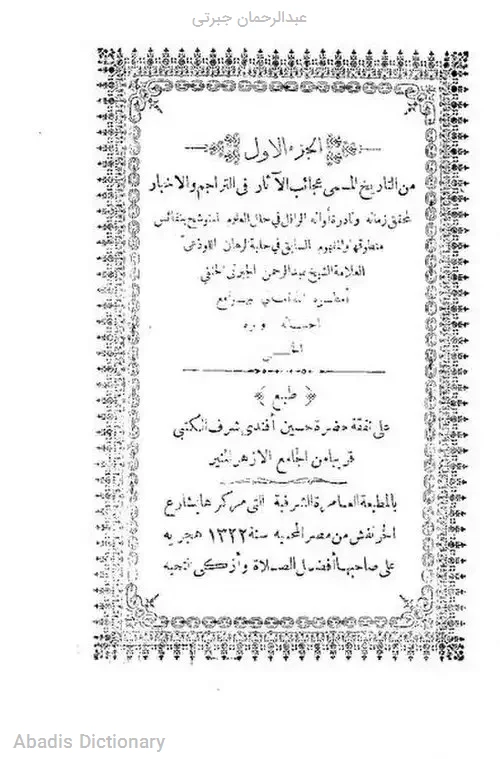 عبدالرحمان جبرتی
الجزء الاول
من التاريخ المسمى عجائب الآثار فى التراجم والاخبار
لمحقق زمانه ونادرة أوانه الرافل فى حلل العلوم المتوشح بنفائس
منطوقها والمفهوم السابق فى حلبة الرهان اللوذعى
العلامة الشيخ عبد الرحمن الجبرتى الحنفى
أمطره الله
احسانه وبره
طبع
على نفقة حضرة حسين أفندى شرف الكتبى
قريبا من الجامع الازهر المنير
بالمطبعة العامرة الشرفية التى مركزها بشارع
الخرنفش من مصر المحميه سنة ١٣٢٢ هجريه
على صاحبها أفضل الصلاة وأزكى التحيه
Abadis Dictionary